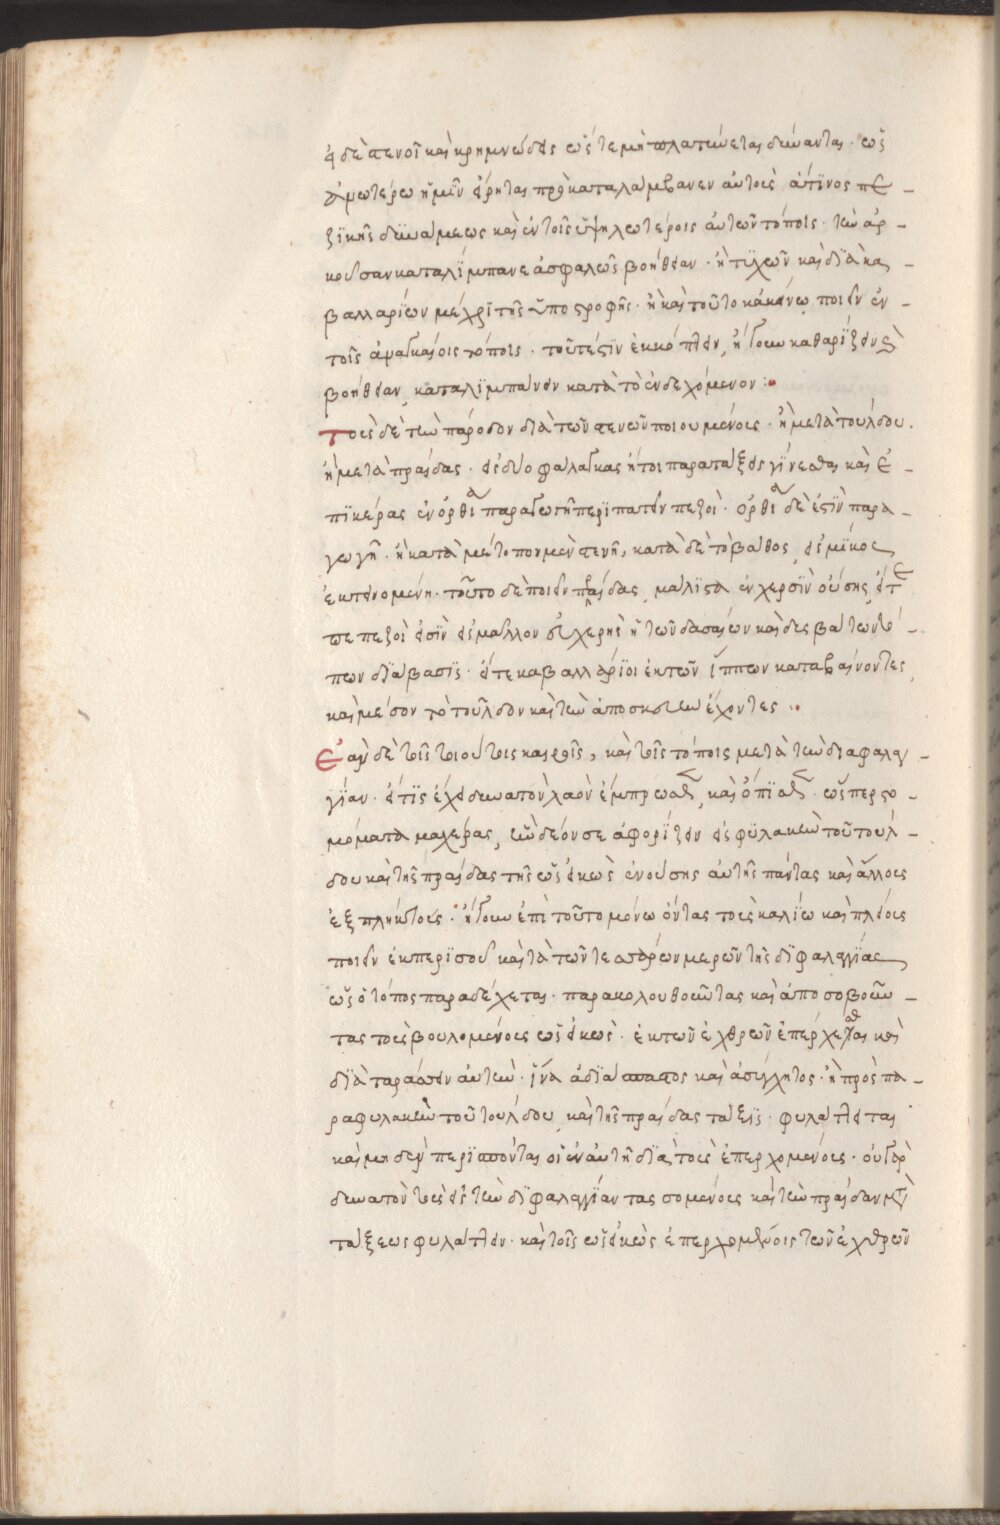 εἰ δὲ στενοὶ καὶ κρημνώδεις ὥστε μὴ πλατύνεσθαι δύνανται · ὡς
ἀνωτέρω ἡμῖν εἴρηται προκαταλαμβάνειν αὐτοὺς ἄτινος πε -
ζικῆς δυνάμεως καὶ ἐν τοῖς ὑψηλωτέροις αὐτῶν τόποις · τὴν ἀρ -
κοῦσαν καταλϊμπανε ἀσφαλῶς βοήθειαν · ἢ ψιλῶν καὶ διὰ κα -
βαλλαρίων μέχρι τῆς ὑποστροφῆς · ἢ καὶ τοῦτο κἀκείνω ποιεῖν ἐν -
τοῖς ἀναγκαίοις τόποις · τουτέστιν ἐκκόπτειν, ἤγουν καθαρίζειν καὶ
βοήθειαν καταλιμπάνειν κατὰ τὸ ἐνδεχόμενον :·
Τοὺς δὲ τὴν πάροδον διὰ τῶν στενῶν ποιουμένους · ἢ μετὰ τούλδου ·
ἢ μετὰ πραίδας · εἰς δύο φάλαγγας ἤτοι παρατάξεις γίνεσθαι καὶ ἐ -
πὶ κέρας ἐν ὀρθία παραγωγῆ περιπατεῖν πεζοὶ · ὀρθία δὲ ἐστὶν παρα -
γωγὴ · ἡ κατὰ μέτοπον μὲν στενὴ, κατὰ δὲ τὸ βάθος, εἰς μῖκος
ἐκτεινομένη · τοῦτο δὲ ποιεῖν πραίδας, μάλιστα ἐν χερσὶν οὔσης, εἴτε
τε πεζοὶ εἰσὶν εἰ μᾶλλον δυσχερὴς ἡ τῶν δασαίων καὶ δεσβάτων τό -
πων διάβασις · εἴτε καβαλλάριοι ἐκ τῶν ἵππων καταβαίνοντες,
καὶ μέσον τὸ τοῦλδον καὶ τὴν ἀποσκευὴν ἔχοντες :·
Ἐὰν δὲ τοῖς τοιούτοις καιροῖς, καὶ τοῖς τόποις μετὰ τὴν διφαλαγ -
γίαν · εἴτις ἔχει δυνατὸν λαὸν ἔμπροσθεν, καὶ ὄπισθεν · ὥσπερ στο -
μώματα μαχέρας, ὧδε δέον σε ἀφορίζειν εἰς φύλακὴν τοῦ τούλ -
δου καὶ τῆς πραίδας τῆς ὡς εἰκὼς ἐνούσης αὐτῆς πάντας καὶ ἄλλους
ἐξπλήκτους · ἤγουν ἐπὶ τοῦτο μόνω ὄντας τοὺς καλίω καὶ πλείους
ποιεῖν ἐκ περισσοῦ κατὰ τῶν τεσσάρων μερῶν τῆς διφαλαγγίας
ὡς ὁ τόπος παραδέχεται · παρακολουθοῦντας καὶ ἀποσοβοῦν -
τας τοὺς βουλομένους ὡς εἰκὼς · ἐκ τῶν ἐχθρῶν ἐπέρχεσθαι καὶ
διαταράσσειν αὐτὴν · ἵνα ἀδιάσπαστος καὶ ἀσύγχητος · ἡ πρὸς πα -
ραφυλακὴν τοῦ τούλδου, καὶ τῆς πραίδας τάξις · φυλάττεται ·
καὶ μὴ δεῖν περισπῶνται οἱ ἐν αὐτῆ διὰ τοὺς ἐπερχομένους · οὐ γὰρ
δυνατὸν τοὺς εἰς τὴν διφαλαγγίαν τασσομένους καὶ τὴν πραίδαν μετὰ
τάξεως φυλάττειν · καὶ τοῖς ὡς εἰκὼς ἐπερχομένοις τῶν ἐχθρῶν